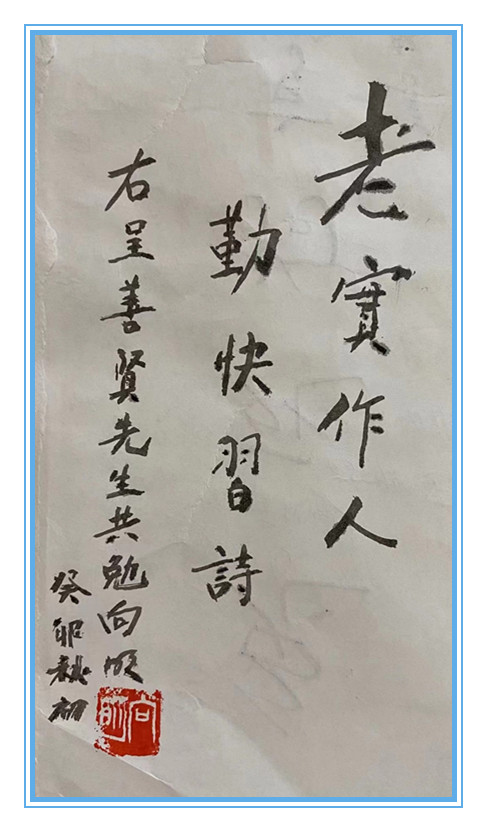 老實作人
勤快習詩
右呈善賢先生共勉向明
癸卯秋初